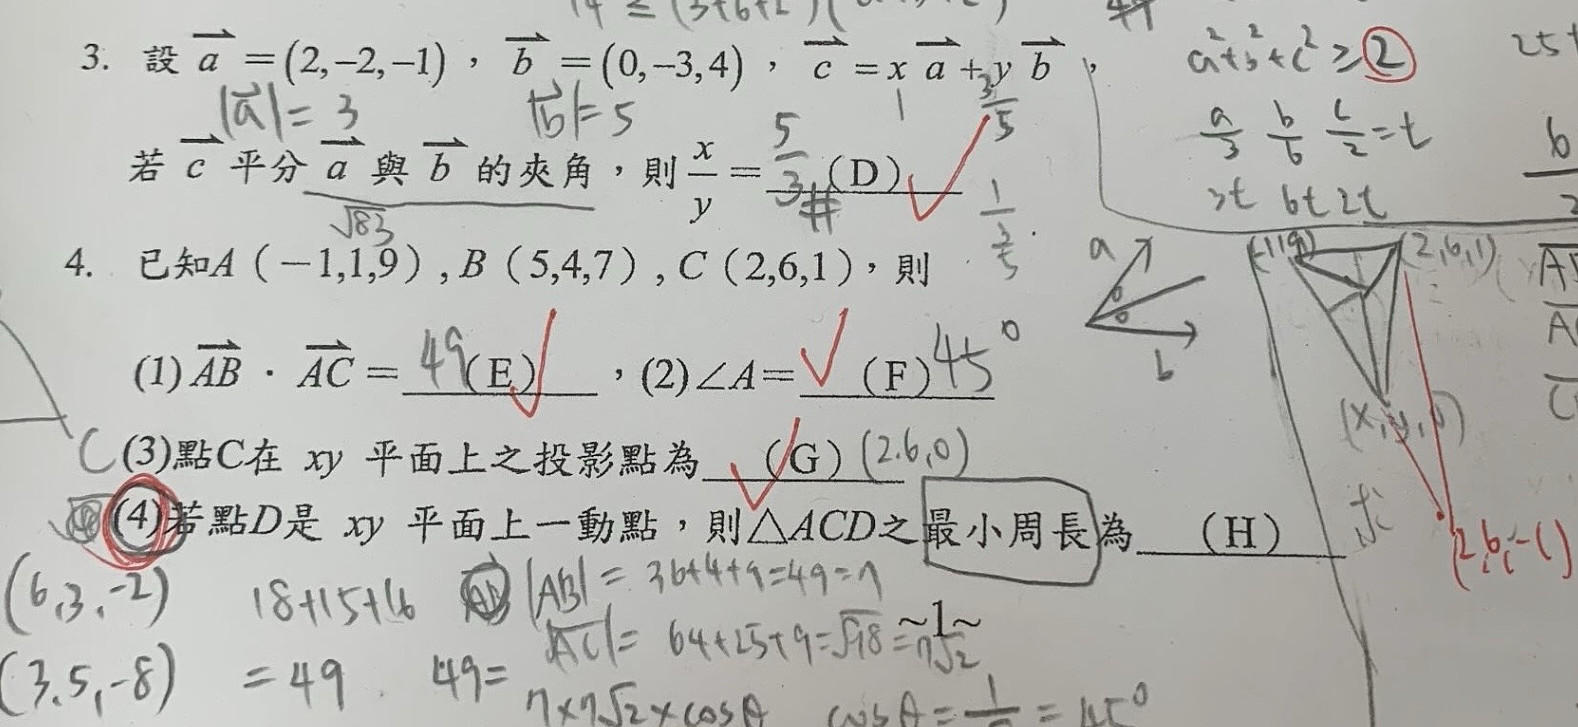 14 ≤ (3+6+2)(
3. 設 a = (2,−2,−1)，b = (0,−3,4)，c = x a + y b，
|a| = 3 |b| = 5 1 3/5
若 c 平分 a 與 b 的夾角，則 x/y = 5/3 # (D)
√83 1 3/5
4. 已知A（−1,1,9）, B（5,4,7）, C（2,6,1），則
(1) AB · AC = 49 (E) ，(2) ∠A = (F) 45°
C (3)點C在 xy 平面上之投影點為 (G) (2.6,0)
(4)若點D是 xy 平面上一動點，則△ACD之最小周長為 (H)
(6,3,-2) 18+15+16 |AB| = 36+4+9=49=7
|AC| = 64+25+9=√98=7√2
~1~
(3.5,-8) = 49 49=
7×7√2×cosθ cosθ = = 45°
a²+b²+c² ≥ 2 25+
a/3 b/6 c/2 = t b
3t 6t 2t
a b
(-119) (2,6,1)
(x,y,0)
(2,6,-1)